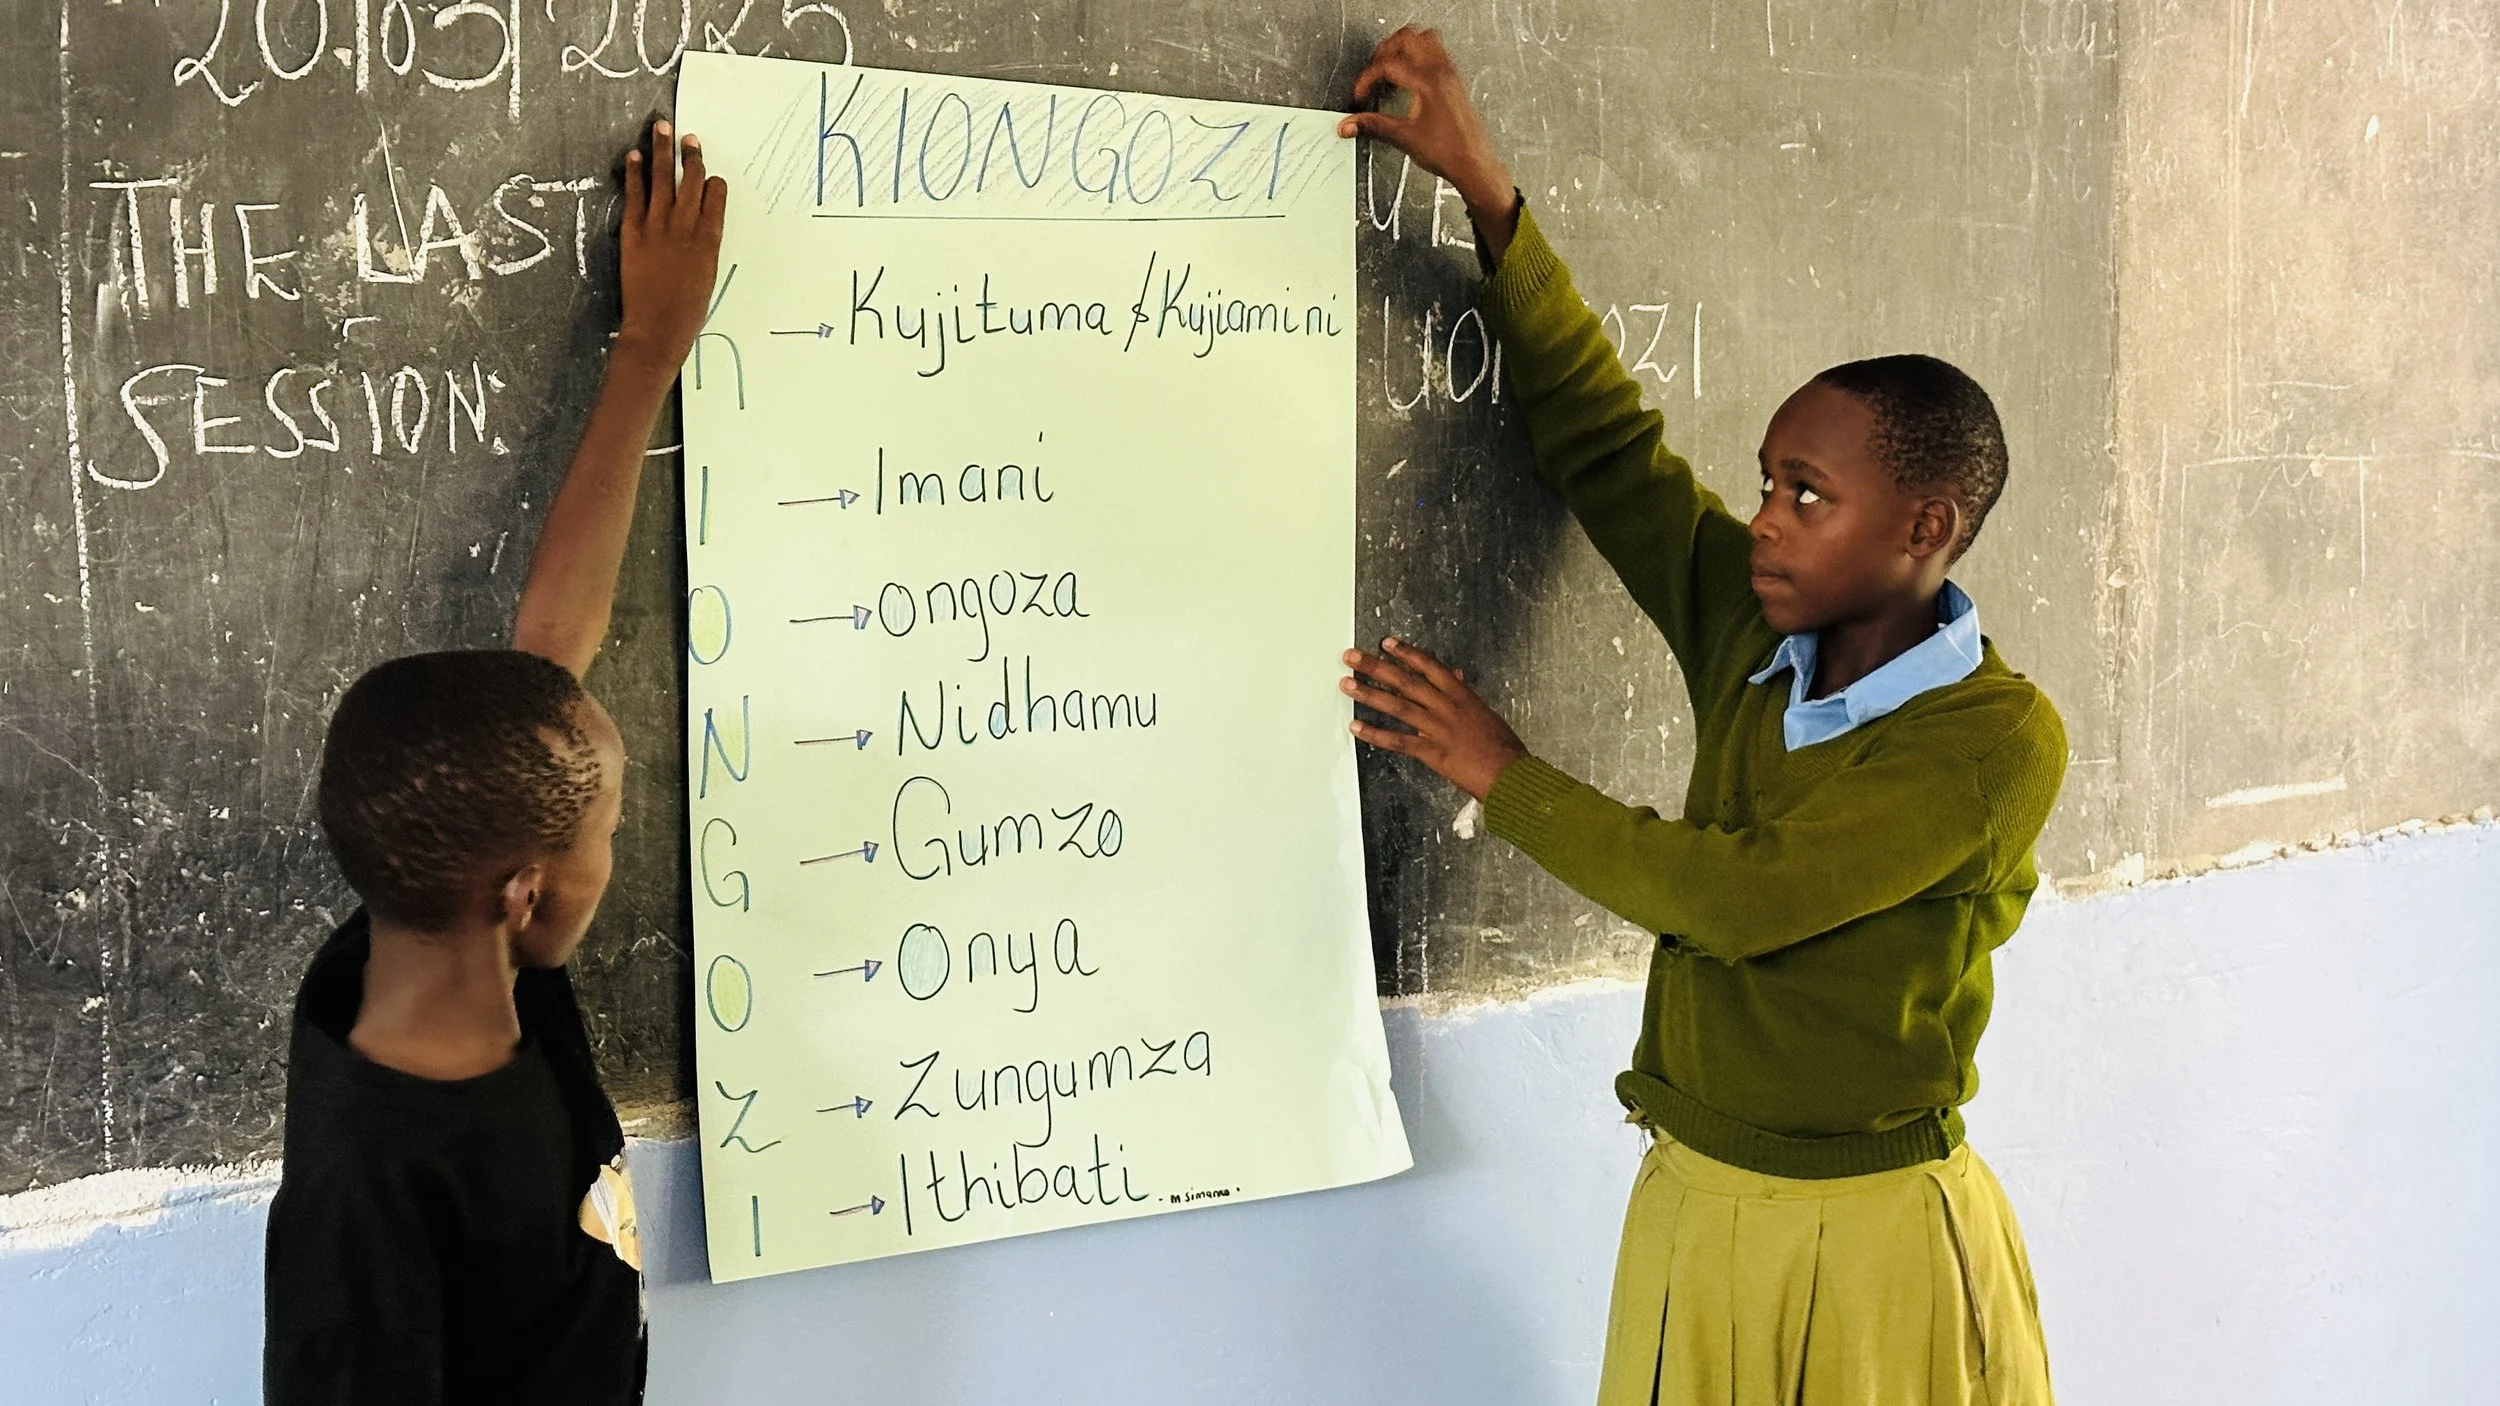 20/03/2025
THE LAST
SESSION:
KIONGOZI
K → Kujituma /Kujiamini
I → Imani
O → Ongoza
N → Nidhamu
G → Gumzo
O → Onya
Z → Zungumza
I → Ithibati